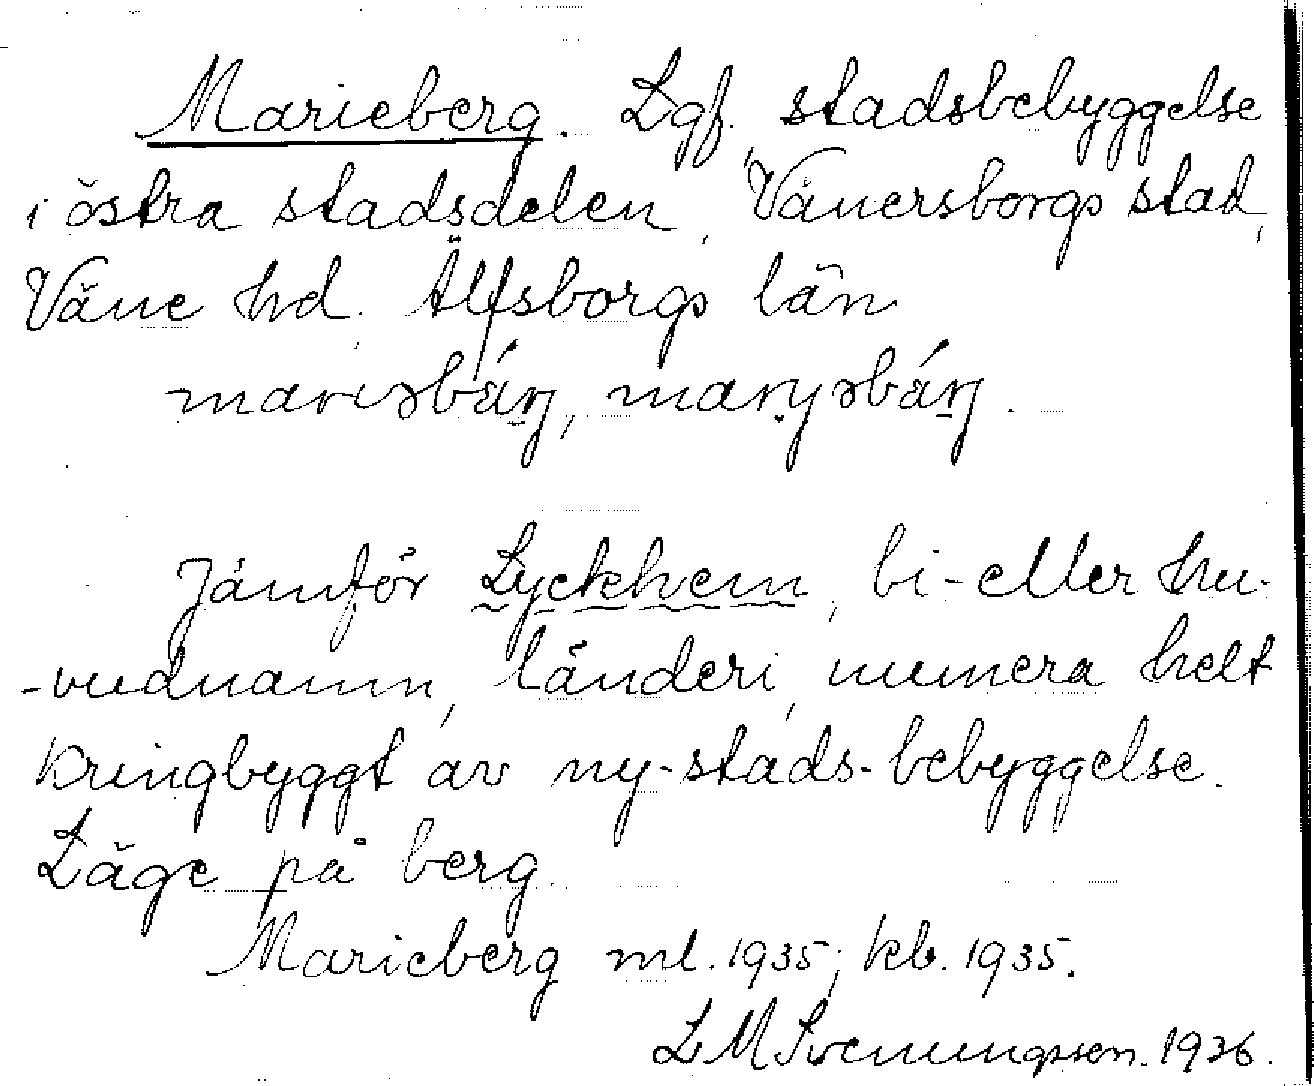 Marieberg. Lgf. stadsbebyggelse
i östra stadsdelen, Vänersborgs stad,
Väne hd. Älfsborgs län
Jämför Lyckhem, bi- eller hu-
-vudnamn, länderi, numera helt
kringbyggt av ny-stads-bebyggelse.
Läge på berg.
Marieberg ml. 1935; kb. 1935.
L M Svenungsson. 1936.